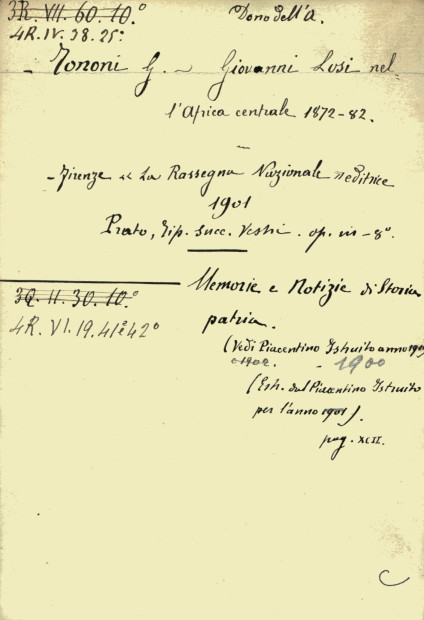 3R. VII. 60. 10.° Dono dell'A.
4R. IV. 38. 25°
- Tononi G. - Giovanni Losi nel-
l'Africa centrale 1872-82.
- Firenze "La Rassegna Nazionale" editrice
1901
Prato, Tip. Succ. Vestri. op. in-8°.
3Q. II. 30. 10.° Memorie e Notizie di Storia
4R. VI. 19. 41 e 42° patria.
(Vedi Piacentino Istruito anno 1901
e 1902. - 1900
(Estr. dal Piacentino Istruito
per l'anno 1901).
pag. XCII.
C